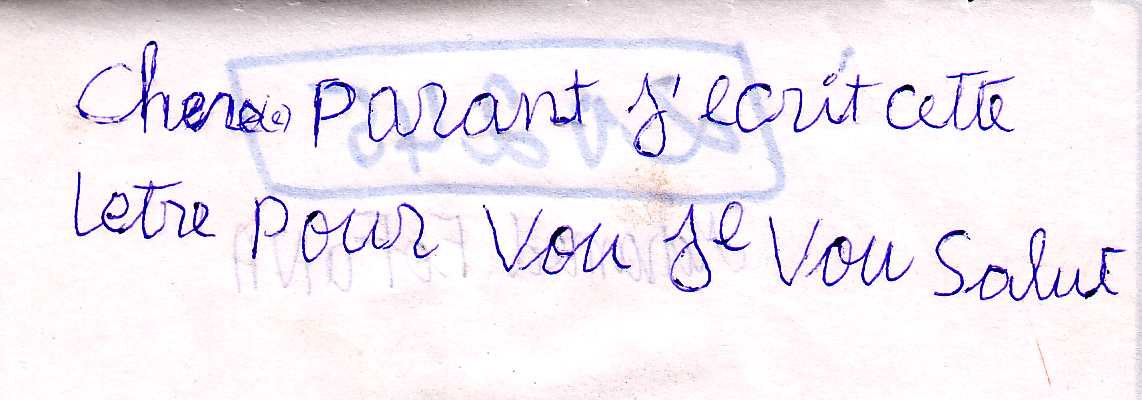 Chere Parant j'ecrit cette
letre pour Vou je Vou Salut